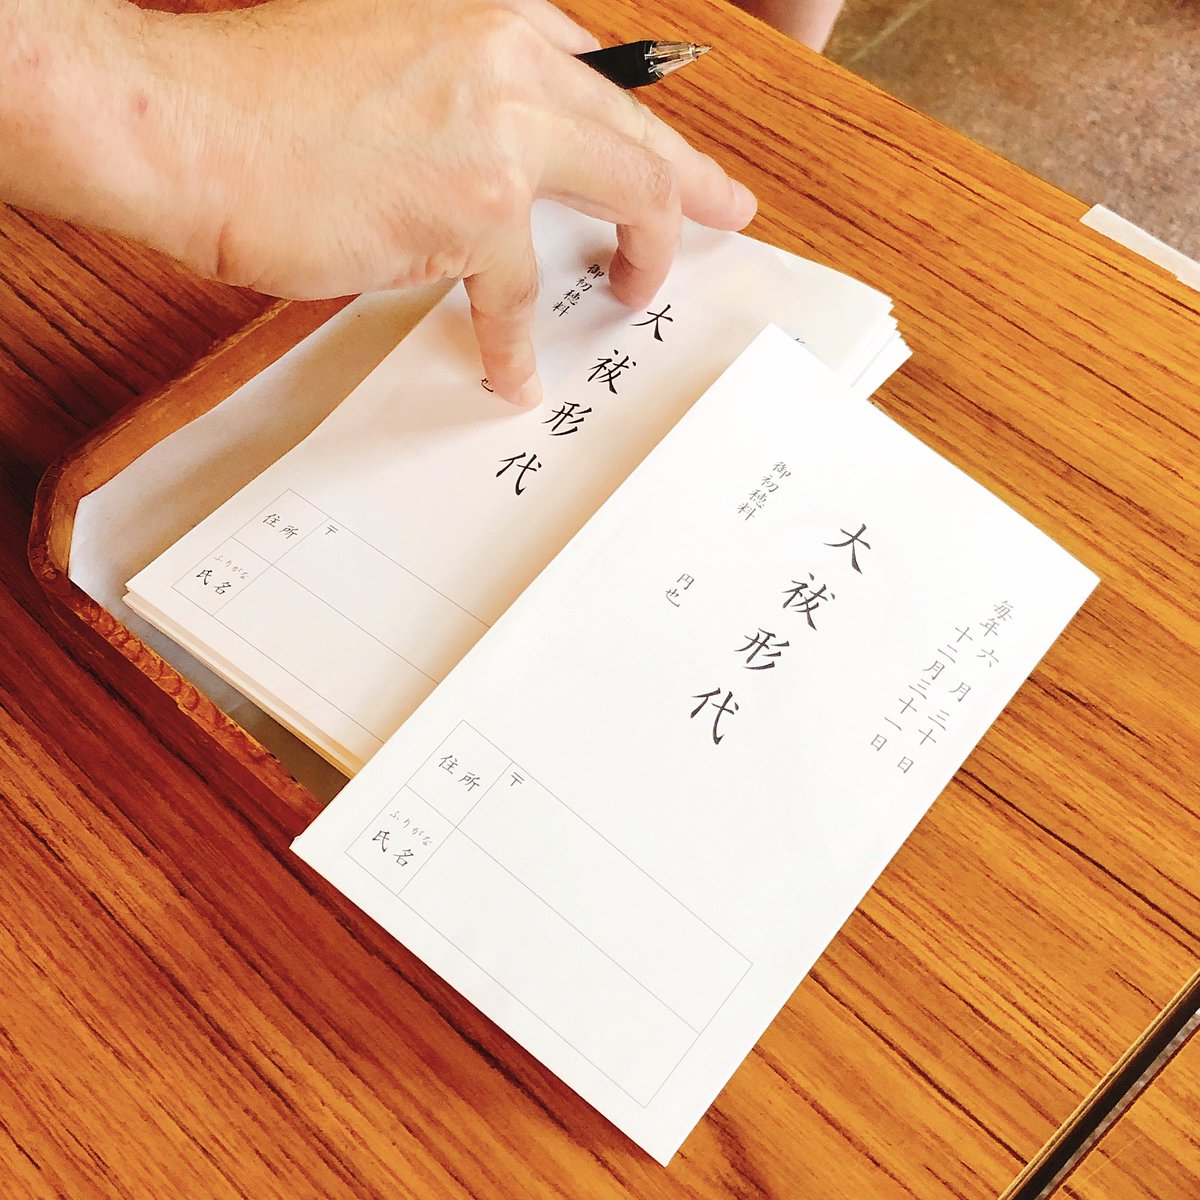 毎年六月三十日
十二月三十一日
大祓形代
御初穂料
円也
住所
〒
ふりがな
氏名
大祓形代
御初穂料
也
住所
〒
ふりがな
氏名